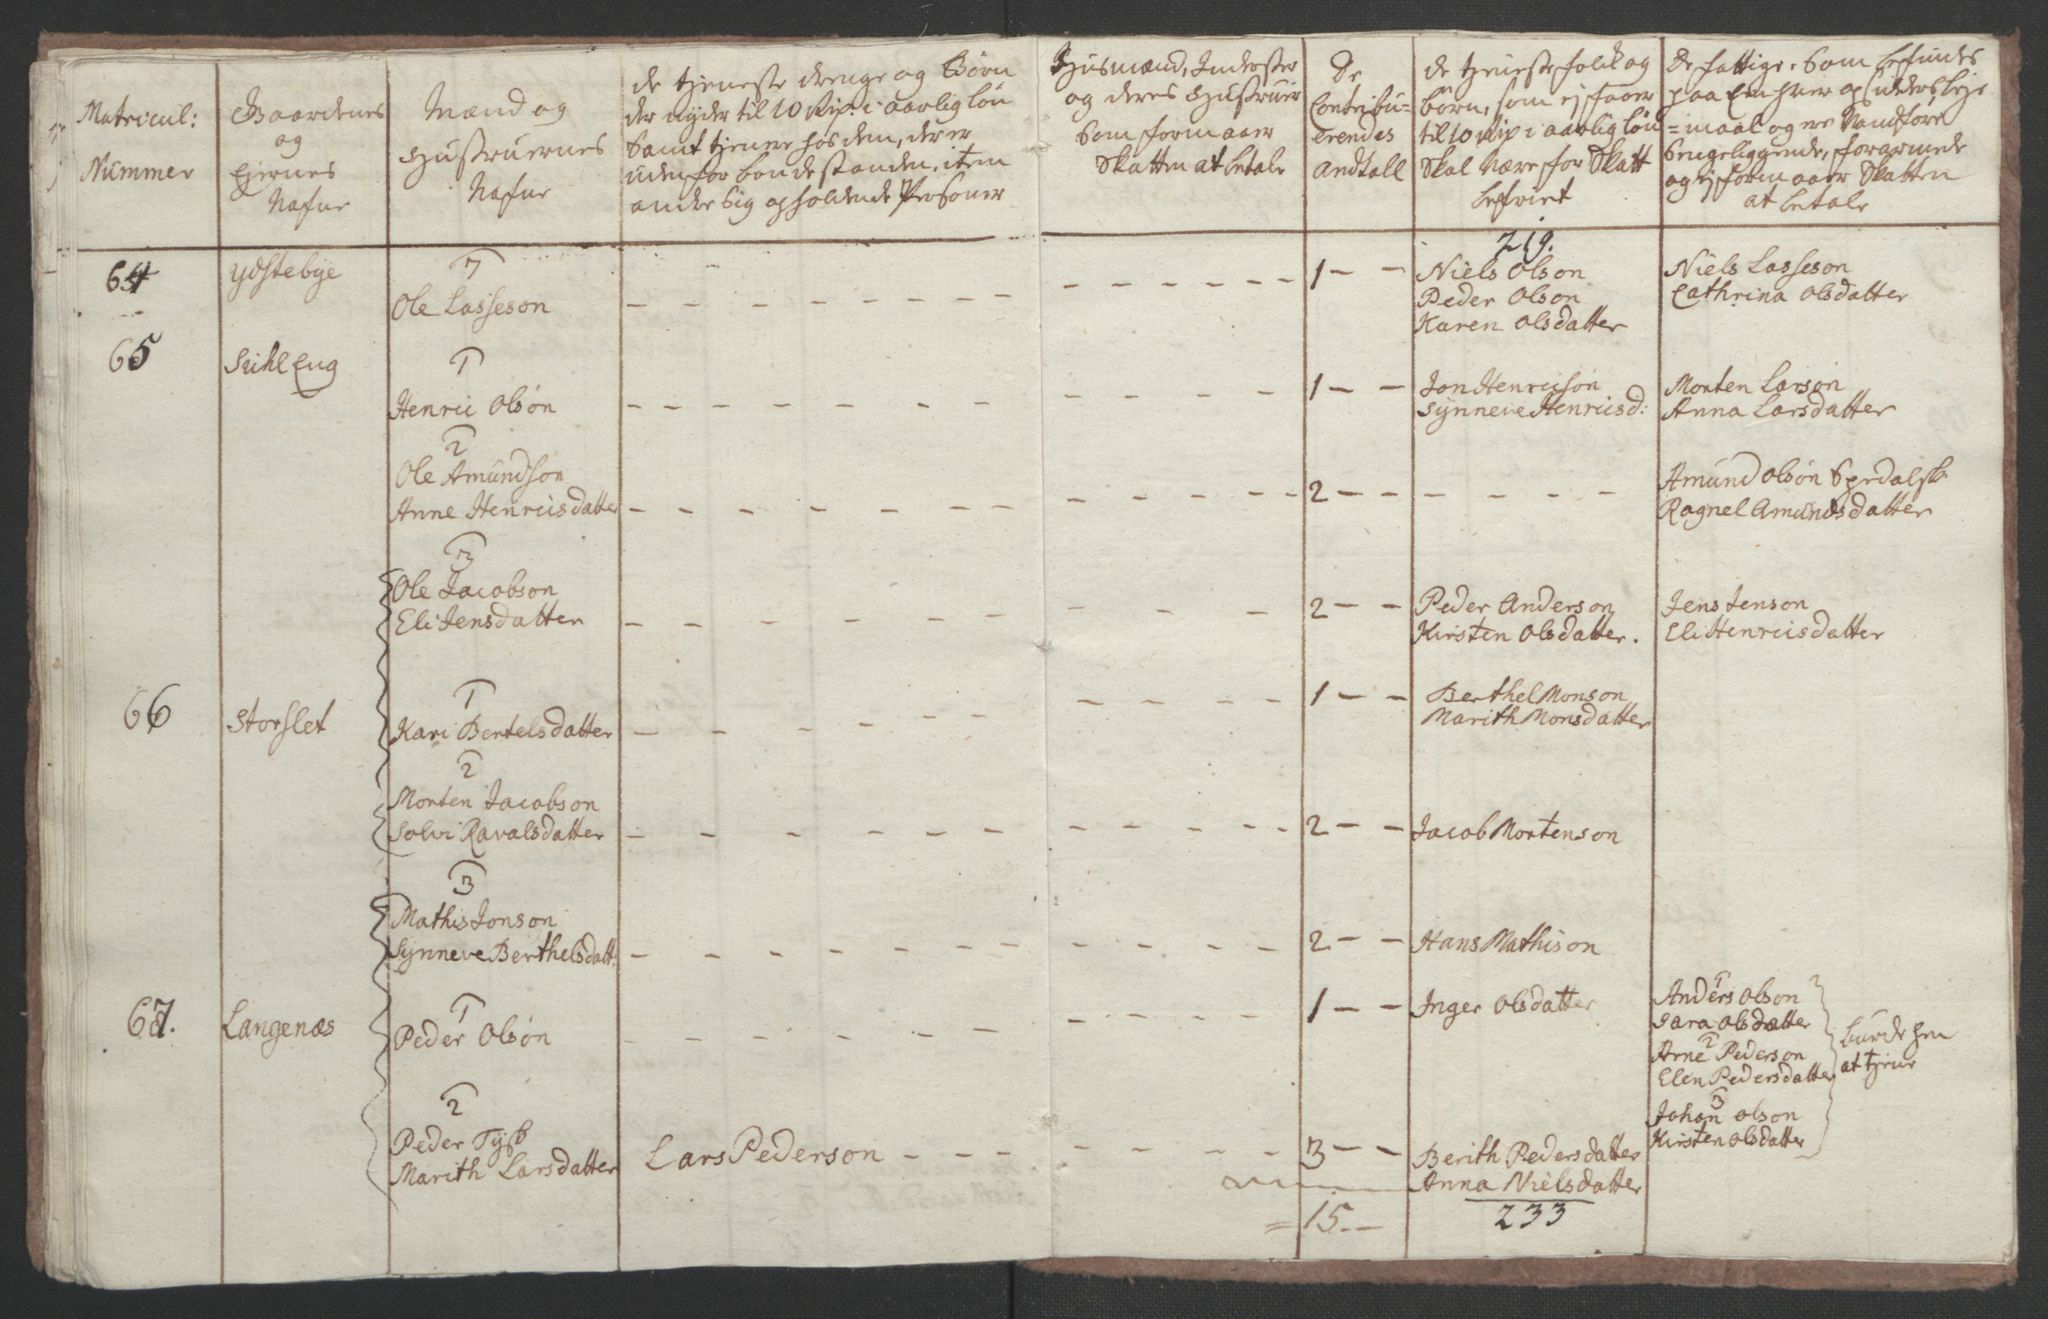 Matricul:
Nummer
Gaardenes
og
Ejernes
Nafne
Mænd og
Hustruernes
Nafne
de tjeneste drenge og Børn
der nyder til 10 Rip: i aarlig løn
samt tjener hos dem, der er
uden for bondestanden, item
andre sig opholdende Personer
Husmænd, Inderster
og deres Hustruer
som formaaer
Skatten at betale
De
Contribu-
erendes
Andtall
de tjeneste folk og
børn, som ej faaer
til 10 Rip i aarlig løn
skal være for Skatt
befriet
De fattige som befindes
paa Enhver og
=maal og ere Vandføre
Sengeliggende, forarmede
og ej formaaer Skatten
at betale
219.
64
Ydstebye
1
Ole Lasseson
1 - -
Niels Olson
Peder Olson
Karen Olsdatter
Niels Lasseson
Cathrina Olsdatter
65
Sihl Eng
1
Henric Olsøn
1 - -
Jon Henricsøn
Synneve Henricsd:
Morten Larson
Anna Larsdatter
2
Ole Amundsøn
Anne Henricsdatter
2 - -
Amund Olsøn
Ragnel Amundsdatter
3
Ole Jacobson
Eli Jensdatter
2 - -
Peder Anderson
Kirsten Olsdatter.
Jens Jenson
Eli Henricsdatter
66
Storslet
1
Kari Bertelsdatter
1 - -
Berthel Monson
Marith Monsdatter
2
Morten Jacobson
Solvi Ravalsdatter
2 - -
Jacob Mortenson
3
Mathis Jonson
Synneve Berthelsdatt:
2 - -
Hans Mathison
67.
Langenæs
1
Peder Olsøn
1 - -
Inger Olsdatter
1
Anders Olson
Sara Olsdatter
2
Arne Pederson
Elen Pedersdatter
3
Johan Olson
Kirsten Olsdatter
burde hen
at tjene
2
Peder Tysk
Marith Larsdatter
Lars Pederson
3 - -
Berith Pedersdatter
Anna Nielsdatter
= 15. -
233